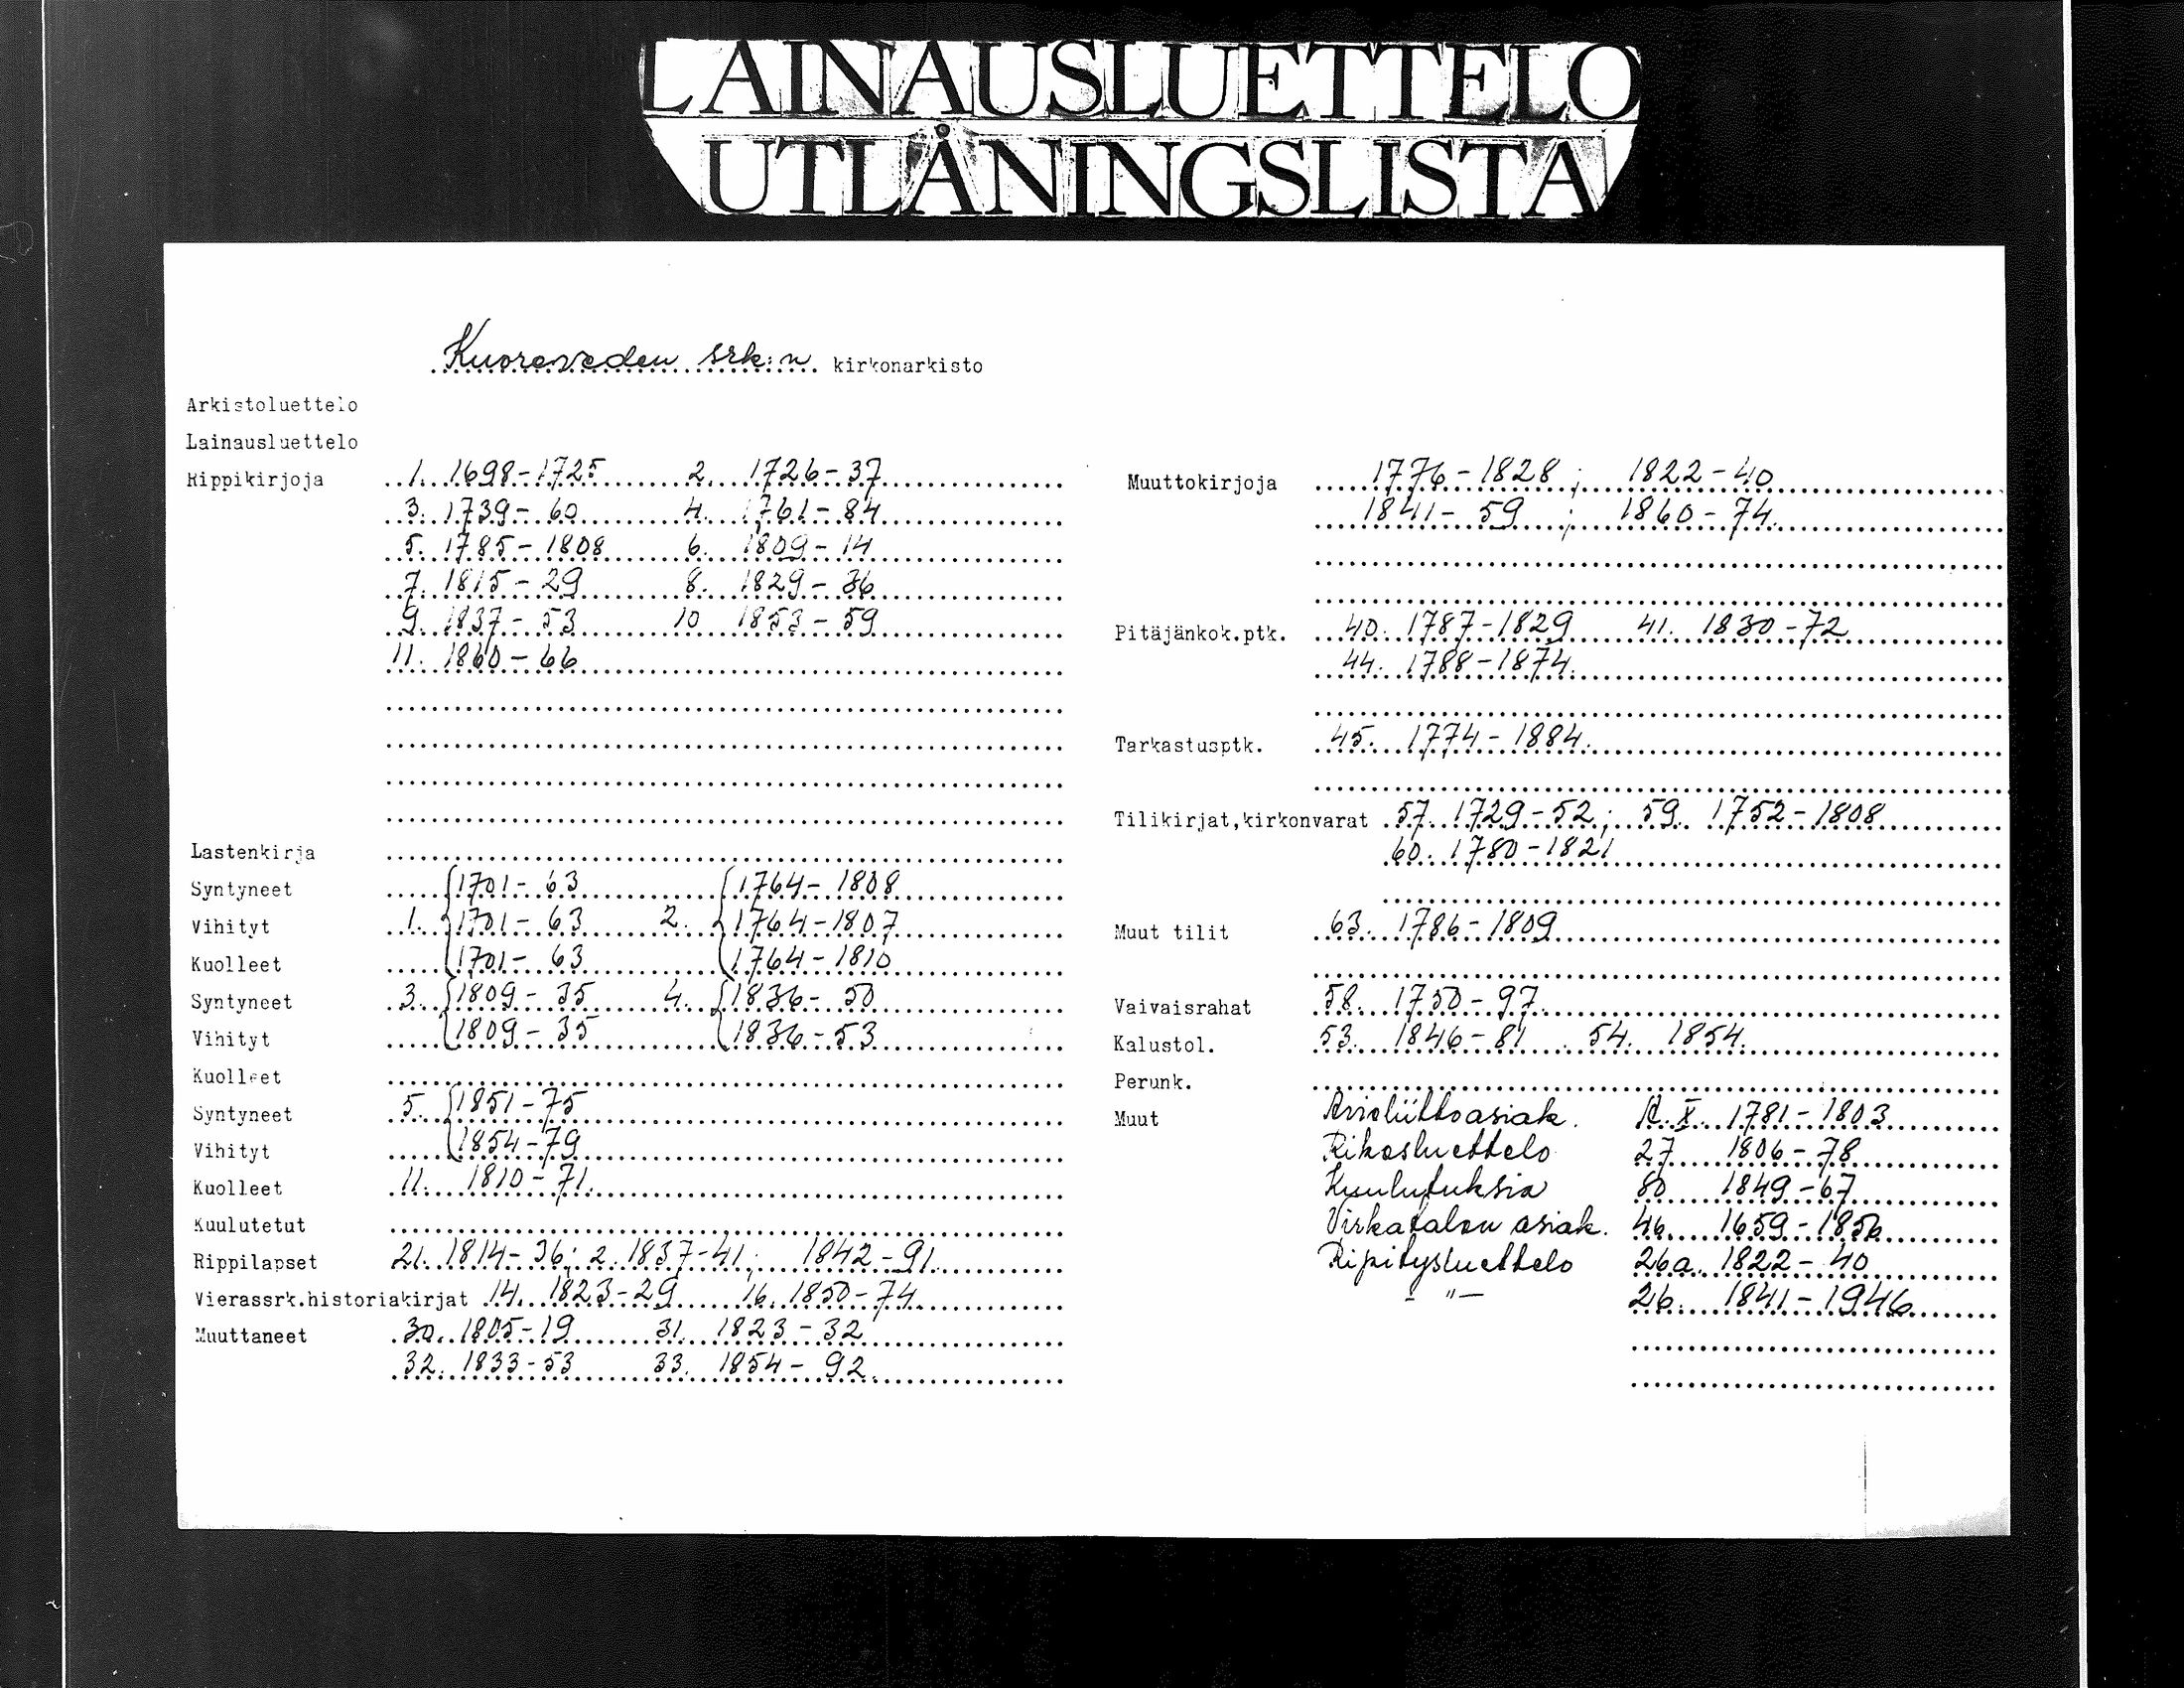 LAINAUSLUETTELO
UTLÅNINGSLISTA
Kuoreveden srk:n kirkonarkisto
Arkistoluettelo
Lainausluettelo
Rippikirjoja 1. 1698-1725 2. 1726-37
3. 1739-60 4. 1761-84
5. 1785-1808 6. 1809-14
7. 1815-29 8. 1829-36
9. 1837-53 10 1853-59
11. 1860-66
Lastenkirja
Syntyneet 1701-63 1764-1808
Vihityt 1. 1701-63 2. 1764-1807
Kuolleet 1701-63 1764-1810
Syntyneet 3. 1809-35 4. 1836-50
Vihityt 1809-35 1836-53
Kuolleet
Syntyneet 5. 1851-75
Vihityt 1854-79
Kuolleet 11. 1810-71.
Kuulutetut
Rippilapset 21. 1814-36; 2. 1837-41; 1842-91.
Vierassrk.historiakirjat 14. 1823-29 16. 1850-74
Muuttaneet 30. 1805-19 31. 1823-32
32. 1833-53 33. 1854-92.
Muuttokirjoja 1776-1828 ; 1822-40
1841-59 ; 1860-74.
Pitäjänkok.ptk. 40. 1787-1829 41. 1830-72
44. 1788-1874.
Tarkastusptk. 45. 1774-1884.
Tilikirjat,kirkonvarat 57. 1729-52; 59. 1752-1808
60. 1780-1821
Muut tilit 63. 1786-1809
Vaivaisrahat 58. 1750-97.
Kalustol. 53. 1846-81 54. 1854.
Perunk.
Muut Avioliittoasiak. A. X. 1781-1803
Rikosluettelo 27 1806-78
Kuulutuksia 80 1849-67
Virkatalon asiak. 46. 1659-1856
Ripitysluettelo 26a. 1822-40
- " - 26. 1841-1946